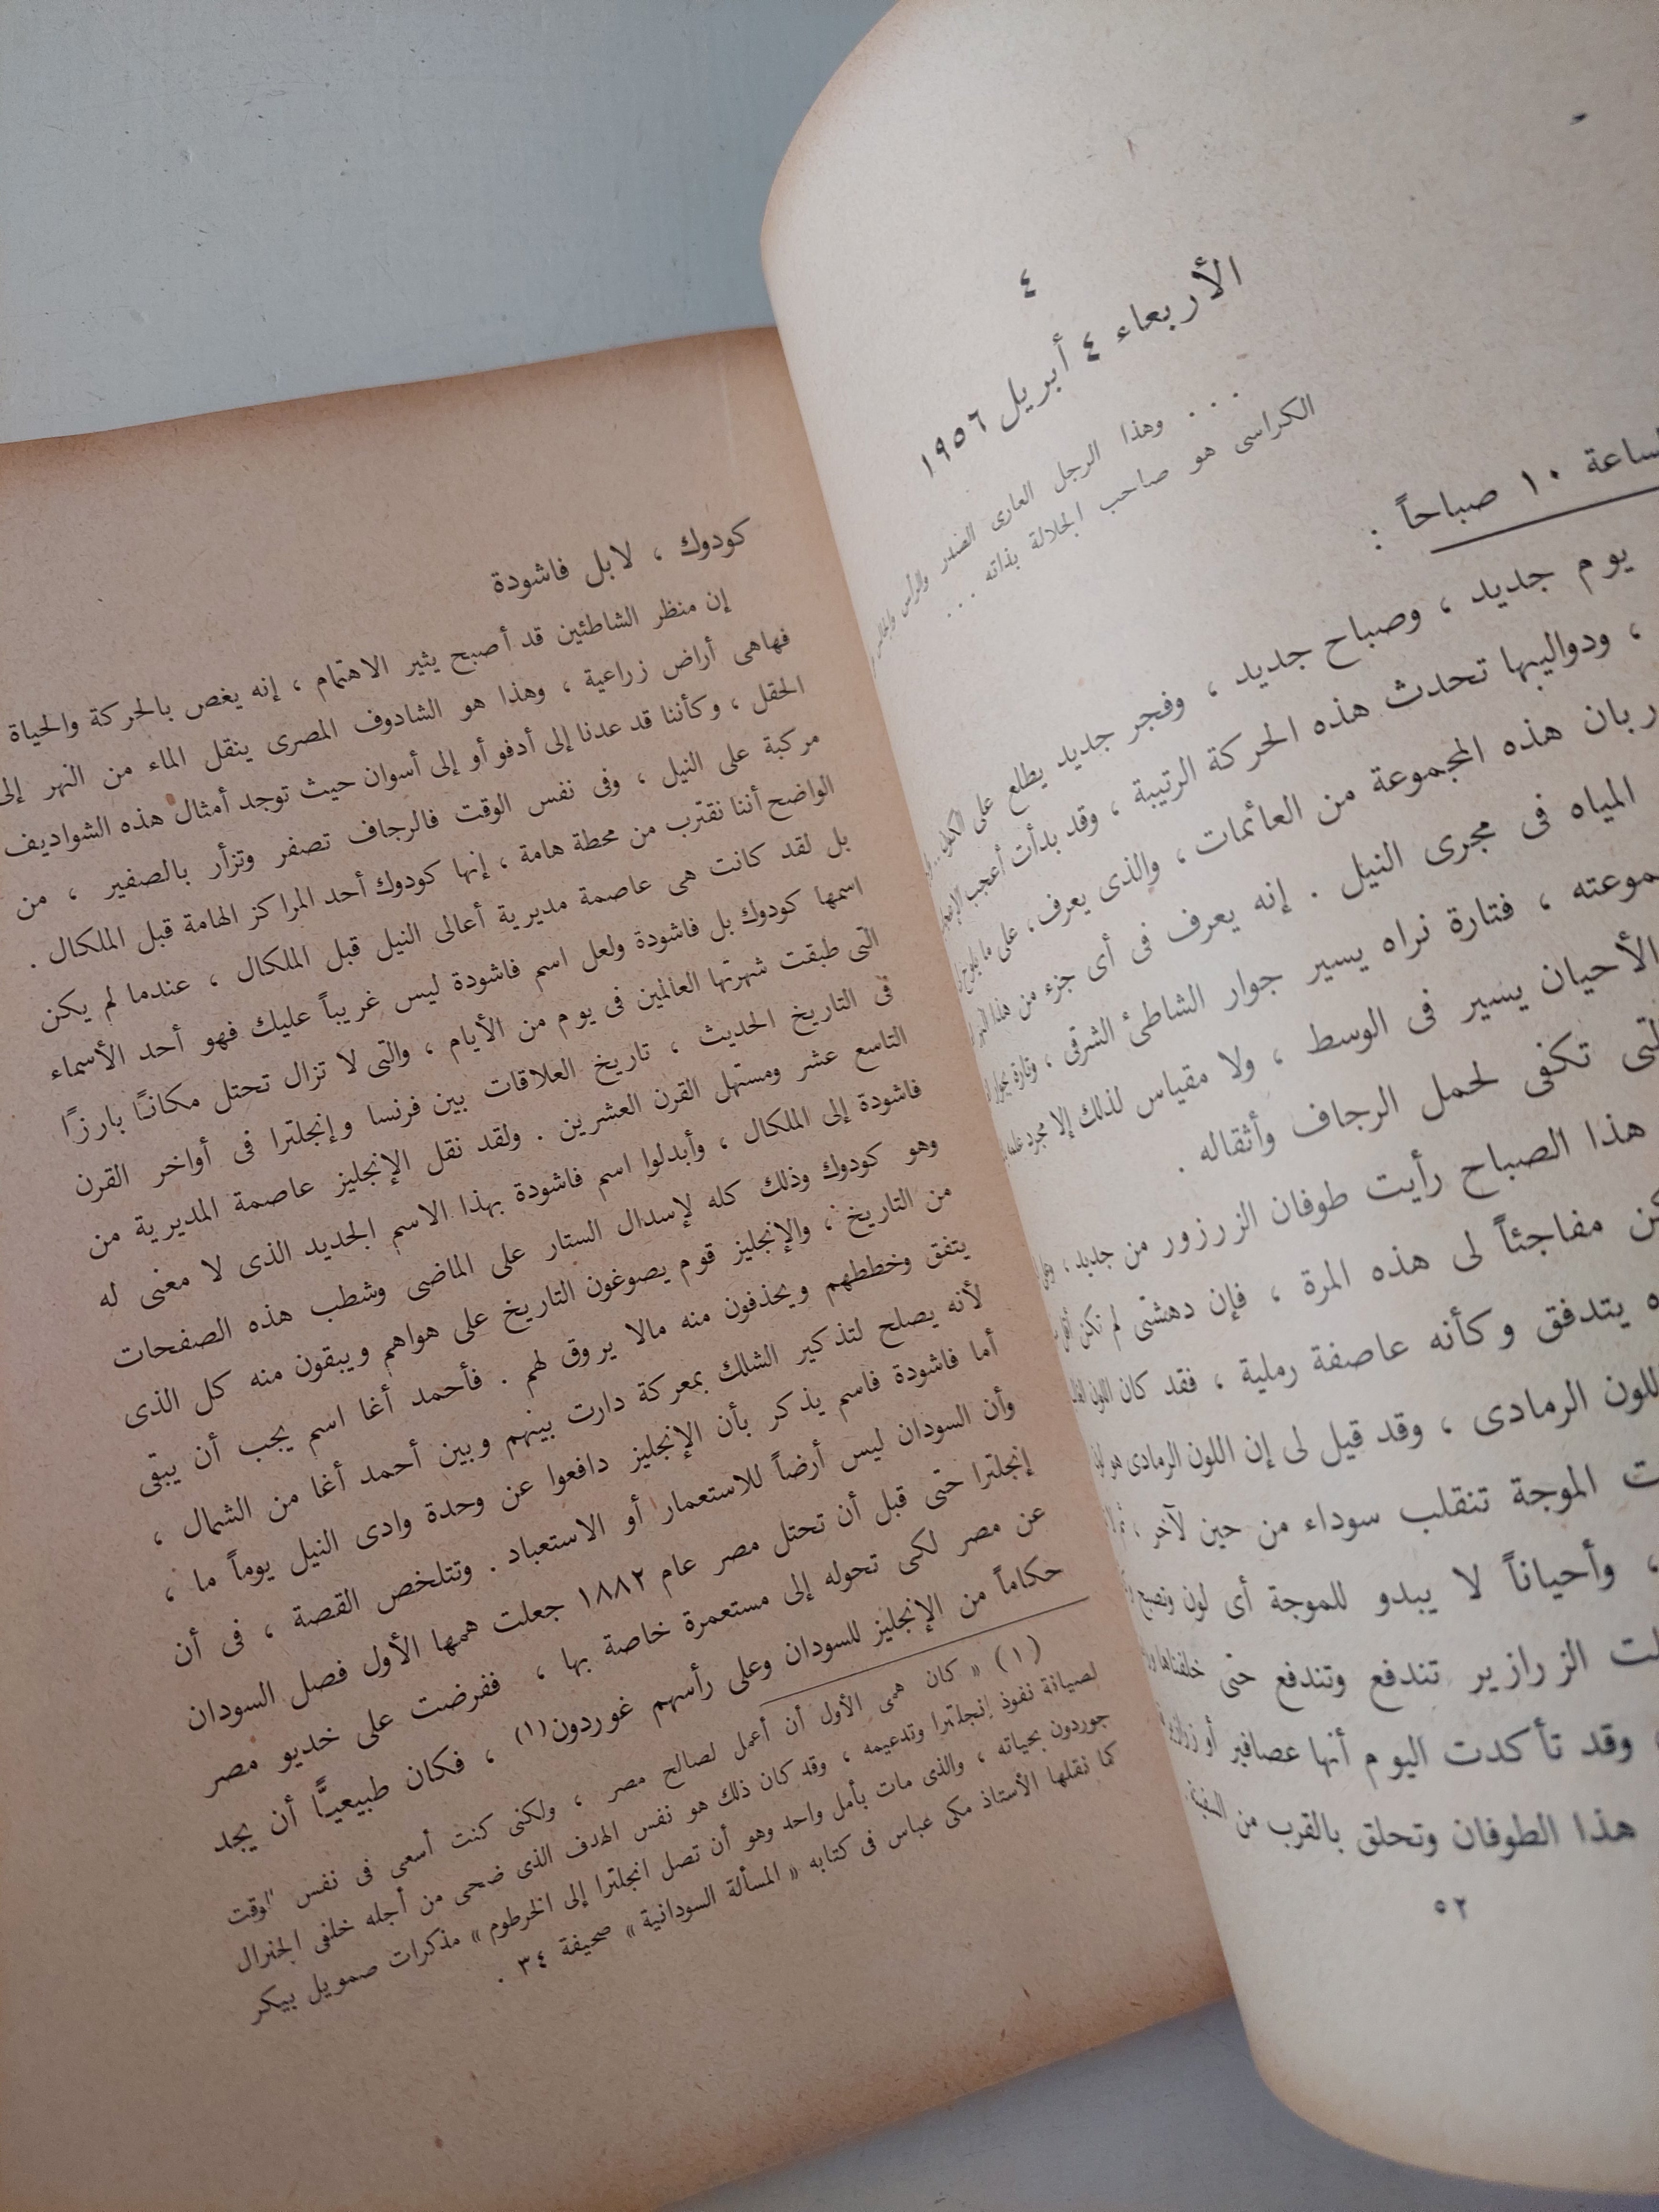 ٤
الأربعاء ٤ أبريل ١٩٥٦
. . . وهذا الرجل العارى الصدر والرأس
الكراسى هو صاحب الجلالة بذاته . . .
ساعة ١٠ صباحاً :
يوم جديد ، وصباح جديد ، وفجر جديد يطلع على الكون
، ودواليبها تحدث هذه الحركة الرتيبة ، وقد بدأت أعجب
ربان هذه المجموعة من العائمات ، والذى يعرف ، على ما يلوح
المياه فى مجرى النيل . إنه يعرف فى أى جزء من هذا النهر
موعته ، فتارة نراه يسير جوار الشاطئ الشرقى ، وتارة بجوار
الأحيان يسير فى الوسط ، ولا مقياس لذلك إلا مجرد
لتى تكفى لحمل الرجاف وأثقاله .
هذا الصباح رأيت طوفان الزرزور من جديد ،
كن مفاجئاً لى هذه المرة ، فإن دهشتى لم تكن
ه يتدفق وكأنه عاصفة رملية ، فقد كان اللون
للون الرمادى ، وقد قيل لى إن اللون الرمادى هو
ت الموجة تنقلب سوداء من حين لآخر ،
، وأحياناً لا يبدو للموجة أى لون وتصبح
لت الزرازير تندفع وتندفع حتى خلفناها
، وقد تأكدت اليوم أنها عصافير أو
هذا الطوفان وتحلق بالقرب من السفينة
٥٢
كودوك ، لا بل فاشودة
إن منظر الشاطئين قد أصبح يثير الاهتمام ، إنه يغص بالحركة والحياة
فهاهى أراض زراعية ، وهذا هو الشادوف المصرى ينقل الماء من النهر إلى
الحقل ، وكأننا قد عدنا إلى أدفو أو إلى أسوان حيث توجد أمثال هذه الشواديف
مركبة على النيل ، وفى نفس الوقت فالرجاف تصفر وتزأر بالصفير ، من
الواضح أننا نقترب من محطة هامة ، إنها كودوك أحد المراكز الهامة قبل الملكال .
بل لقد كانت هى عاصمة مديرية أعالى النيل قبل الملكال ، عندما لم يكن
اسمها كودوك بل فاشودة ولعل اسم فاشودة ليس غريباً عليك فهو أحد الأسماء
التى طبقت شهرتها العالمين فى يوم من الأيام ، والتى لا تزال تحتل مكانـًا بارزًا
فى التاريخ الحديث ، تاريخ العلاقات بين فرنسا وإنجلترا فى أواخر القرن
التاسع عشر ومستهل القرن العشرين . ولقد نقل الإنجليز عاصمة المديرية من
فاشودة إلى الملكال ، وأبدلوا اسم فاشودة بهذا الاسم الجديد الذى لا معنى له
وهو كودوك وذلك كله لإسدال الستار على الماضى وشطب هذه الصفحات
من التاريخ ، والإنجليز قوم يصوغون التاريخ على هواهم ويبقون منه كل الذى
يتفق وخططهم ويحذفون منه مالا يروق لهم . فأحمد أغا اسم يجب أن يبقى
لأنه يصلح لتذكير الشلك بمعركة دارت بينهم وبين أحمد أغا من الشمال ،
أما فاشودة فاسم يذكر بأن الإنجليز دافعوا عن وحدة وادى النيل يوماً ما ،
وأن السودان ليس أرضاً للاستعمار أو الاستعباد . وتتلخص القصة ، فى أن
إنجلترا حتى قبل أن تحتل مصر عام ١٨٨٢ جعلت همها الأول فصل السودان
عن مصر لكى تحوله إلى مستعمرة خاصة بها ، ففرضت على خديو مصر
حكاماً من الإنجليز للسودان وعلى رأسهم غوردون(١) ، فكان طبيعيًّا أن يجد
(١) « كان همى الأول أن أعمل لصالح مصر ، ولكنى كنت أسعى فى نفس الوقت
لصيانة نفوذ إنجلترا وتدعيمه ، وقد كان ذلك هو نفس الهدف الذى ضحى من أجله خلفى الجنرال
جوردون بحياته ، والذى مات بأمل واحد وهو أن تصل انجلترا إلى الخرطوم » مذكرات صمويل بيكر
كما نقلها الأستاذ مكى عباس فى كتابه « المسألة السودانية » صحيفة ٣٤ .